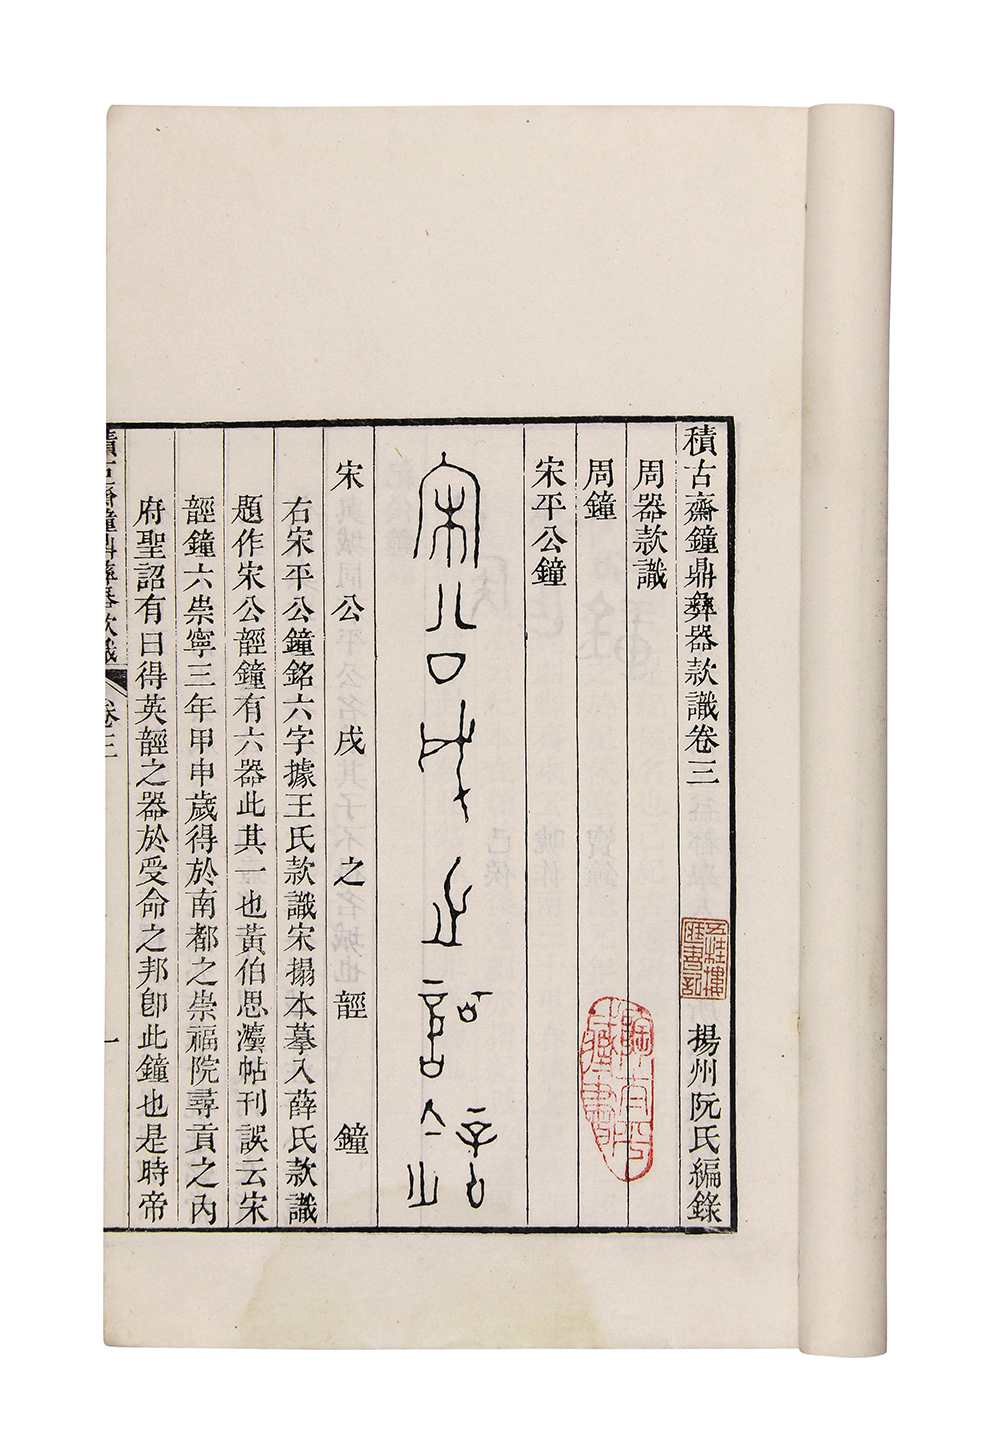 積古齋鐘鼎彝器款識卷三
揚州阮氏編錄
周器款識
周鐘
宋平公鐘
宋公戌之䪫鐘
右宋平公鐘銘六字據王氏款識宋搨本摹入薛氏款識
題作宋公䪫鐘有六器此其一也黃伯思灋帖刊誤云宋
䪫鐘六崇寧三年甲申歲得於南都之崇福院尋貢之內
府聖詔有曰得英䪫之器於受命之邦卽此鐘也是時帝
積古齋鐘鼎彝器款識
卷三
一